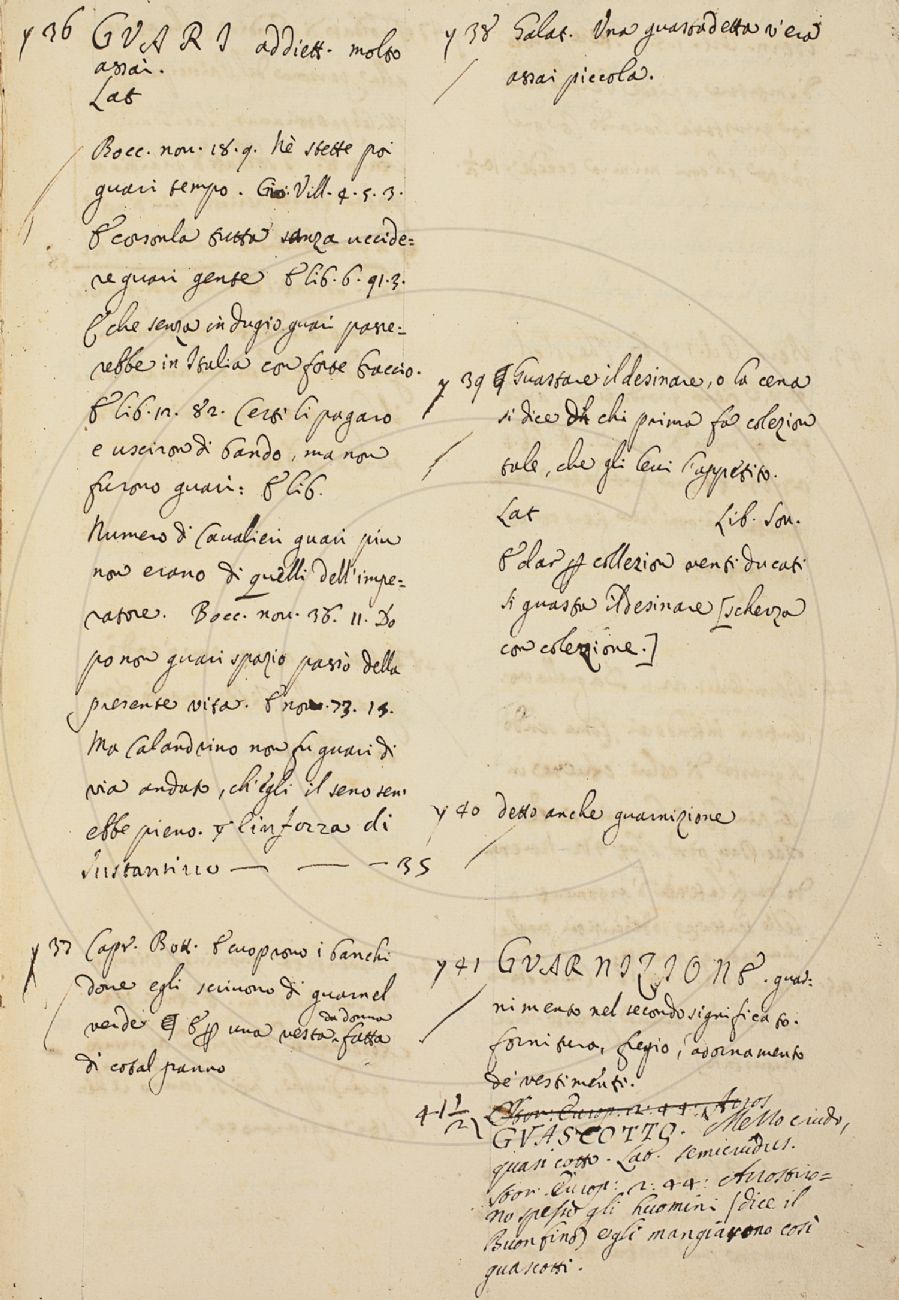 y 36 GVARI addiett. molto
assai.
Lat
Bocc. nov. 18. 9. Nè stette poi
guari tempo. Gio: Vill. 4. 5. 3.
E corsonla tutta sanza uccide=
re guari gente E lib. 6. 91. 3.
E che senza indugio guari passe=
rebbe in Italia con forte braccio.
E lib. 12. 82. Certi li pagaro
e usciron di bando, ma non
furono guari: E lib.
Numero di Cavalieri guari piu
non erano di quelli dell'impe=
ratore. Bocc. nov. 36. 11. Do
po non guari spazio passò della
presente vita. E nov. 73. 15.
Ma Calandrino non fu guari di
via andato, ch'egli il seno sen'
ebbe pieno. y l in forza di
Sustantivo — — — 35
y 37 Capr. Bott. E cuoprono i banchi
dove egli scrivono di guarnel
verde E una vesta da donna fatta
di cotal panno
y 38 Galat. Una guastadetta v'era
assai piccola.
y 39 Guastare il desinare, o la cena
si dice chi prima fa colezion
tale, che gli levi l'appetito.
Lat Lib. Son.
E dar p collezion venti ducati
si guasta il desinare [scherza
con colezione.]
y 40 detto anche guarnizione
y 41 GVARNIZIONE. guar-
nimento nel secondo significato.
fornitura, fregio, adornamento
de' vestimenti.
41 1/2 Stor. Europ. 2. 44. Arros
GVASCOTTO. Mezzo crudo,
quasi cotto. Lat. semicrudus.
Stor. Europ: 2: 44: Arrostiro=
no spesso gli huomini (dice il
Buonfino) e gli mangiavono così
guascotti.